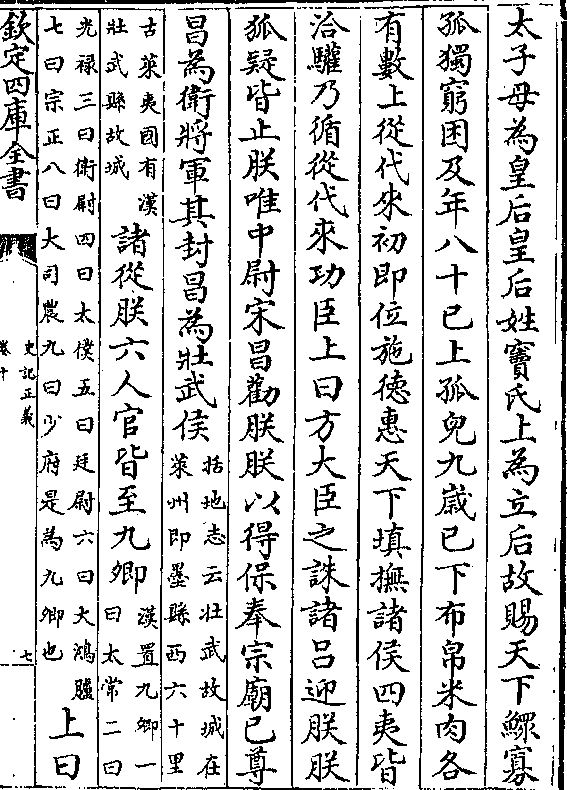 太子母為皇后皇后姓竇氏上為立后故賜天下鰥寡
孤獨窮困及年八十已上孤兒九歲已下布帛米肉各
有數上從代來初即位施德惠天下填撫諸侯四夷皆
洽驩乃循從代來功臣上曰方大臣之誅諸呂迎朕朕
狐疑皆止朕唯中尉宋昌勸朕朕以得保奉宗廟已尊
昌為衛將軍其封昌為壯武侯括地志云壯武故城在萊州即墨縣西六十里
古萊夷國有漢壯武縣故城諸從朕六人官皆至九卿漢置九卿一曰太常二曰
光禄三曰衛尉四曰太僕五曰廷尉六曰大鴻臚七曰宗正八曰大司農九曰少府是為九卿也上曰
欽定四庫全書
史記正義
卷十
七